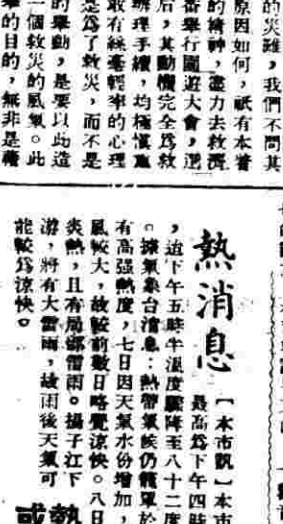 的災難，我們不問其
原因如何，祇有本着
的精神，盡力去救濟
番舉行園遊大會，選
后，其動機完全爲救
辦理手續，均極愼重
敢有絲毫輕率的心理
是爲了救災，而不是
的舉動，是要以此造
一個救災的風氣。此
的目的，無非是藉
熱消息
【本市訊】本市
最高爲下午四時
，迨下午五時半溫度驟降至八十二度
。據氣象台消息：熱帶氣候仍籠罩於
有高强熱度，七日因天氣水份增加，
風較大，故較前數日略覺涼快。八日
炎熱，且有局部雷雨。揚子江下
游，將有大雷雨，故雨後天氣可
能較爲涼快。
熱
或